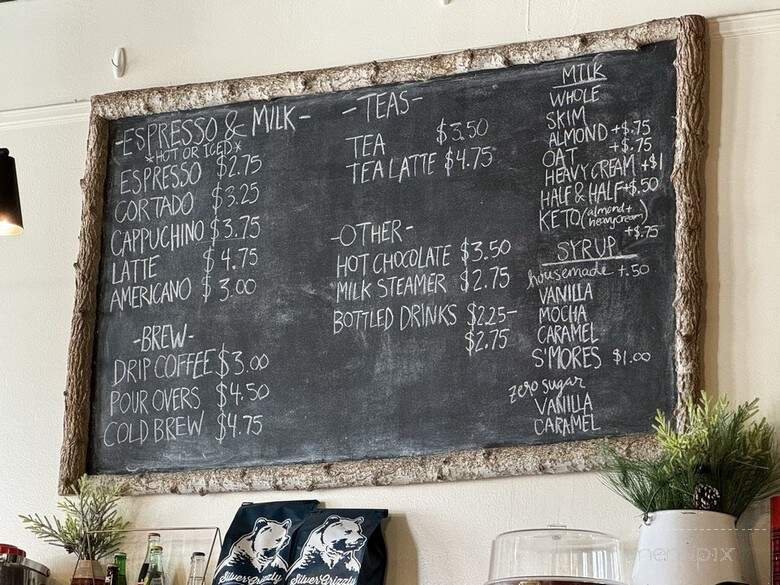 -ESPRESSO & MILK-
*HOT OR ICED*
ESPRESSO $2.75
CORTADO $3.25
CAPPUCHINO $3.75
LATTE $4.75
AMERICANO $3.00
-BREW-
DRIP COFFEE $3.00
POUR OVERS $4.50
COLD BREW $4.75
-TEAS-
TEA $3.50
TEA LATTE $4.75
-OTHER-
HOT CHOCOLATE $3.50
MILK STEAMER $2.75
BOTTLED DRINKS $2.25-
$2.75
MILK
WHOLE
SKIM
ALMOND +$.75
OAT +$.75
HEAVY CREAM +$1
HALF & HALF +$.50
KETO (almond +
heavy cream)
+$.75
SYRUP
housemade +.50
VANILLA
MOCHA
CARAMEL
S'MORES $1.00
zero sugar
VANILLA
CARAMEL
Silver Grizzly
Silver Grizzly